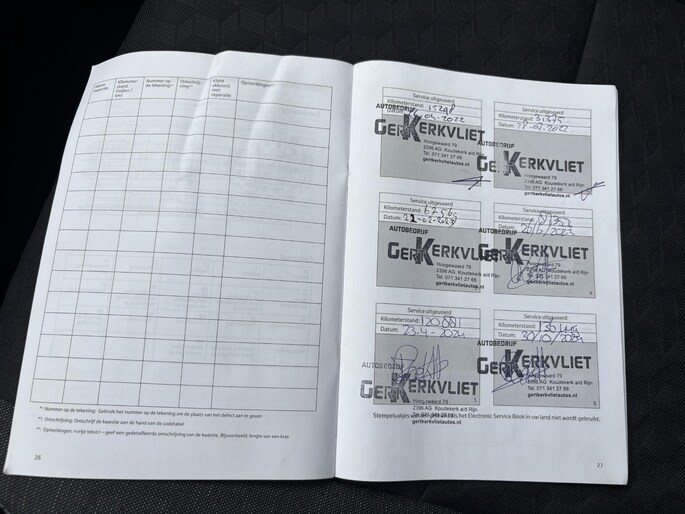 Datum
inspectie
Kilometer-
stand
(mijlen /
km)
Nummer op
de tekening*¹
Omschrij-
ving*²
Klant
akkoord
met
reparatie
Opmerkingen*³
*¹ Nummer op de tekening: Gebruik het nummer op de tekening om de plaats van het defect aan te geven
*² Omschrijving: Omschrijf de kwestie aan de hand van de codetabel
*³ Opmerkingen: <vrije tekst> – geef een gedetailleerde omschrijving van de kwestie. Bijvoorbeeld: lengte van een kras
26
Service uitgevoerd
Kilometerstand: 15298
04.2022
AUTOBEDRIJF
GERKERKVLIET
Hoogewaard 79
2396 AG Koudekerk a/d Rijn
Tel. 071 341 27 66
gertkerkvlietautos.nl
Service uitgevoerd
Kilometerstand: 31375
Datum:
AUTOBEDRIJF
KERKVLIET
Hoogewaard 79
2396 AG Koudekerk a/d Rijn
Tel. 071 341 27 66
gertkerkvlietautos.nl
Service uitgevoerd
Kilometerstand:
Datum:
AUTOBEDRIJF
GERKERKVLIET
Hoogewaard 79
2396 AG Koudekerk a/d Rijn
Tel. 071 341 27 66
gertkerkvlietautos.nl
Service uitgevoerd
Kilometerstand:
Datum: 26/6/2023
AUTOBEDRIJF
GERKERKVLIET
Hoogewaard 79
2396 AG Koudekerk a/d Rijn
Tel. 071 341 27 66
gertkerkvlietautos.nl
Service uitgevoerd
Kilometerstand:
Datum: 23-4-2024
AUTOBEDRIJF
GERKERKVLIET
Hoogewaard 79
2396 AG Koudekerk a/d Rijn
Tel. 071 341 27 66
gertkerkvlietautos.nl
Service uitgevoerd
Kilometerstand:
Datum: 30/10/2024
AUTOBEDRIJF
GERKERKVLIET
Hoogewaard 79
2396 AG Koudekerk a/d Rijn
Tel. 071 341 27 66
gertkerkvlietautos.nl
Stempelvakjes als het Electronic Service Book in uw land niet wordt gebruikt.
27